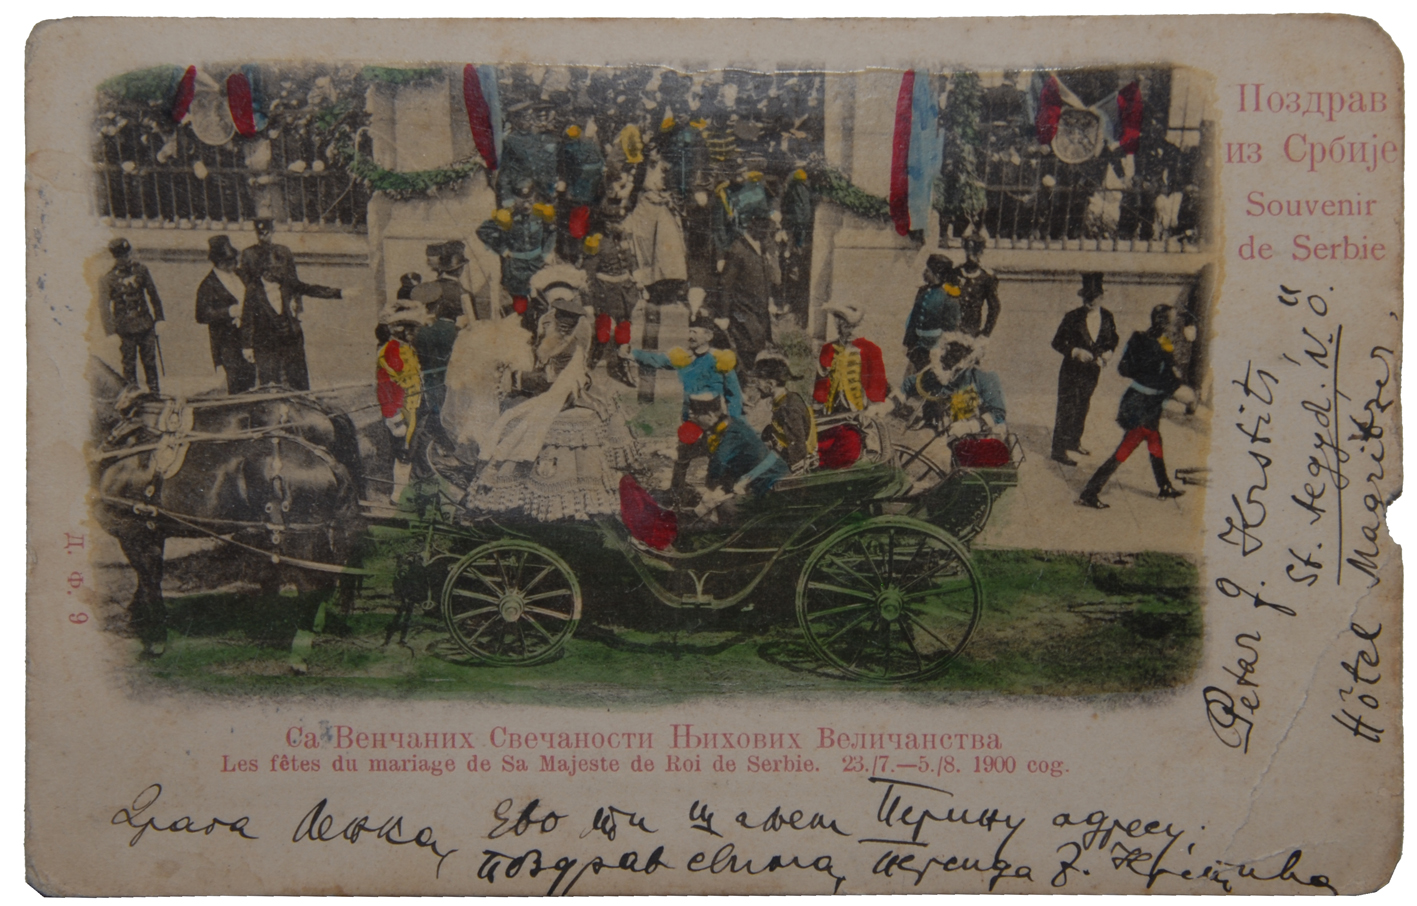 Поздрав
из Србије
Souvenir
de Serbie
Petar J. Krstits
St. Aegyd. "N.Ö.
Hôtel Magritzer,
Д. Ф. 9
Са Венчаних Свечаности Њихових Величанства
Les fêtes du mariage de Sa Majeste de Roi de Serbie. 23./7.—5./8. 1900 год.
Драга Ленка, Ево ти шаљем Перину адресу.
поздрав свима,